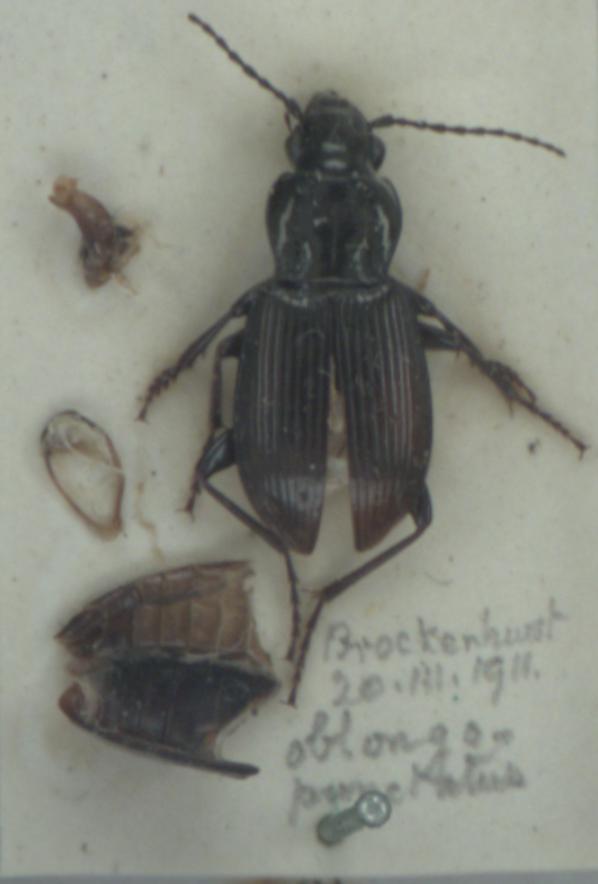 Brockenhurst
20.III.1911.
oblongo-
punctatus